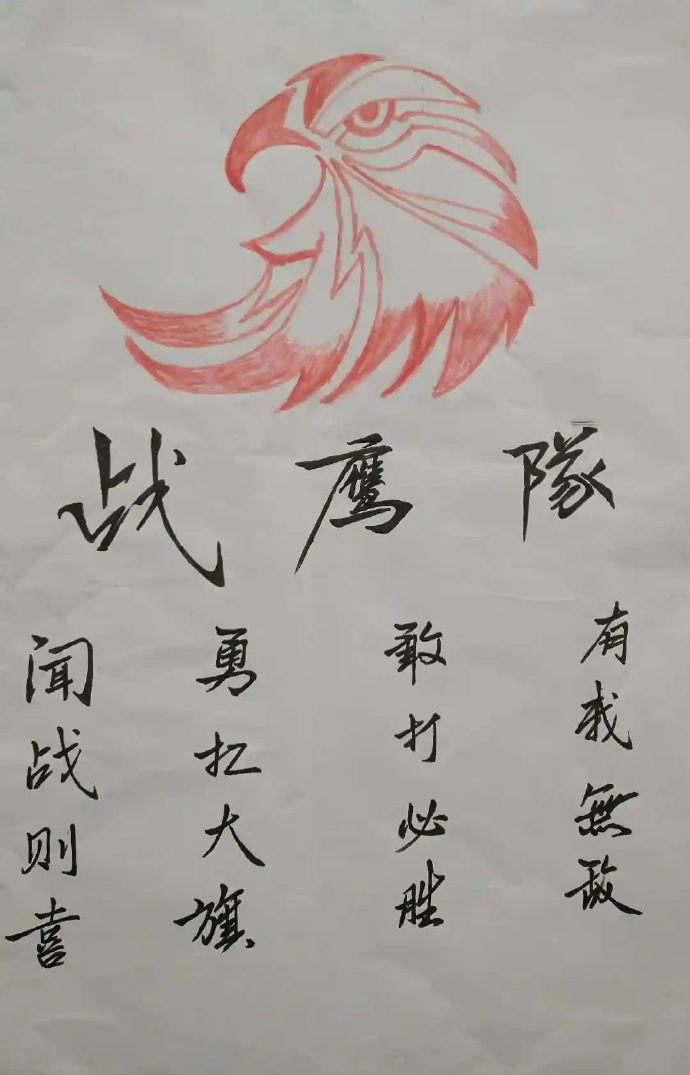 战鹰隊
闻战则喜
勇扛大旗
敢打必胜
有我無敌